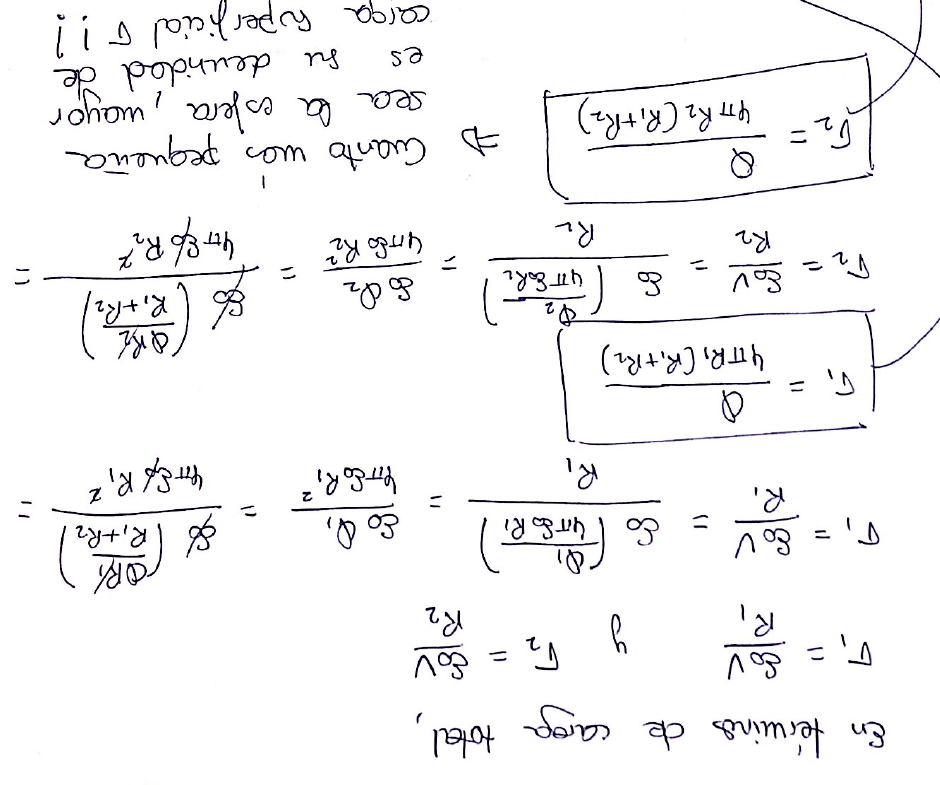 En términos de carga total,
σ₁ = ε₀V/R₁ y σ₂ = ε₀V/R₂
σ₁ = ε₀V/R₁ = ε₀(Q₁/4πε₀R₁)/R₁ = ε₀Q₁/4πε₀R₁² = ε₀(QR₁/R₁+R₂)/4πε₀R₁² =
σ₁ = Q/4πR₁(R₁+R₂)
σ₂ = ε₀V/R₂ = ε₀(Q₂/4πε₀R₂)/R₂ = ε₀Q₂/4πε₀R₂² = ε₀(QR₂/R₁+R₂)/4πε₀R₂² =
σ₂ = Q/4πR₂(R₁+R₂) ⇒ Cuanto más pequeña
sea la esfera, mayor
es su densidad de
carga superficial σ¡¡